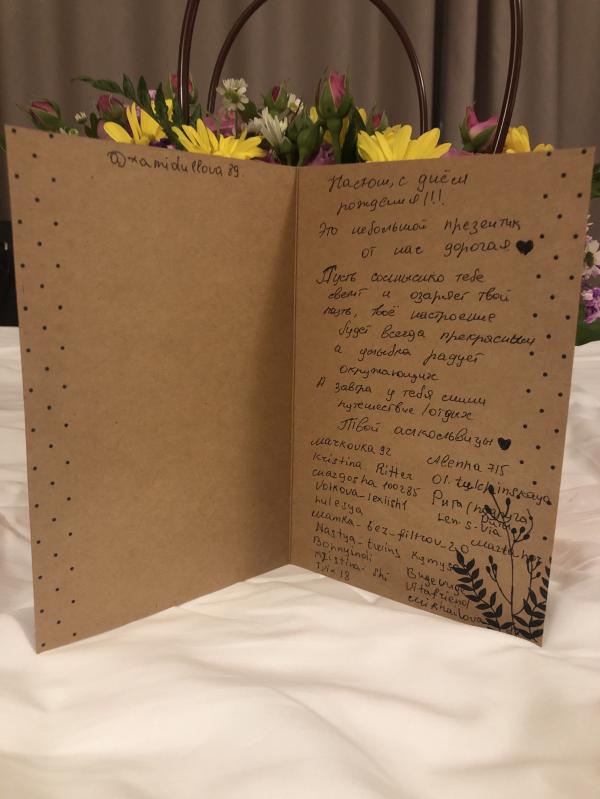 @xamidullova89.
Настюш, с днём
рождения!!!
Это небольшой презентик
от нас дорогая
Пусть солнышко тебе
светит и озаряет твой
путь, твоё настроение
будет всегда прекрасным
а улыбка радует
окружающих
А завтра у тебя
путешествие/отдых
Твой
markovka 92
Alenka 715
Kristina Ritter
Ol.tulchinskaya
margosha 100285
Рита
Volkova-lexlisht
Len S-via
Lulesya
mamka-bez-filtrov-2.0
Nastya-twins
Bonnyinoi
Vitafriend
Kristina Shi
mikhailova
Tvix 18